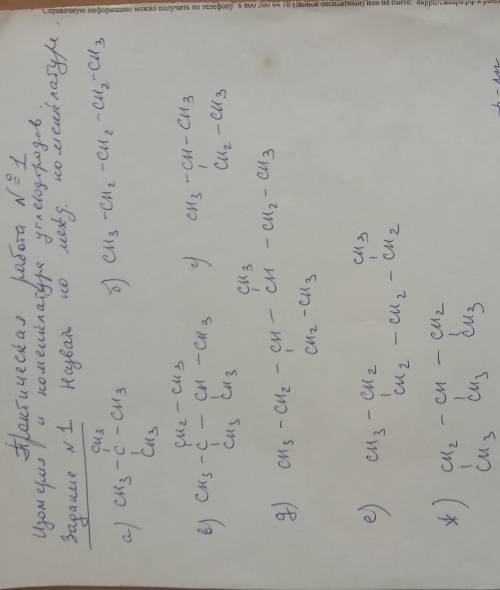 Справочную информацию можно получить по телефону 8 800 300 64 76 (звонок бесплатный) или на сайте:
Практическая работа № 1
Изомерия и номенклатура углеводородов.
Задание № 1 Назвать по межд. номенклатуре.
CH3
а) CH3 – C – CH3
CH3
б) CH3 – CH2 – CH2 – CH2 – CH3
CH2 – CH3
в) CH3 – C – CH – CH3
CH3 CH3
г) CH3 – CH – CH3
CH2 – CH3
CH3
д) CH3 – CH2 – CH – CH – CH2 – CH3
CH2 – CH3
е) CH3 – CH2 CH3
CH2 – CH2 – CH2
ж) CH2 – CH – CH2
CH3 CH3 CH3